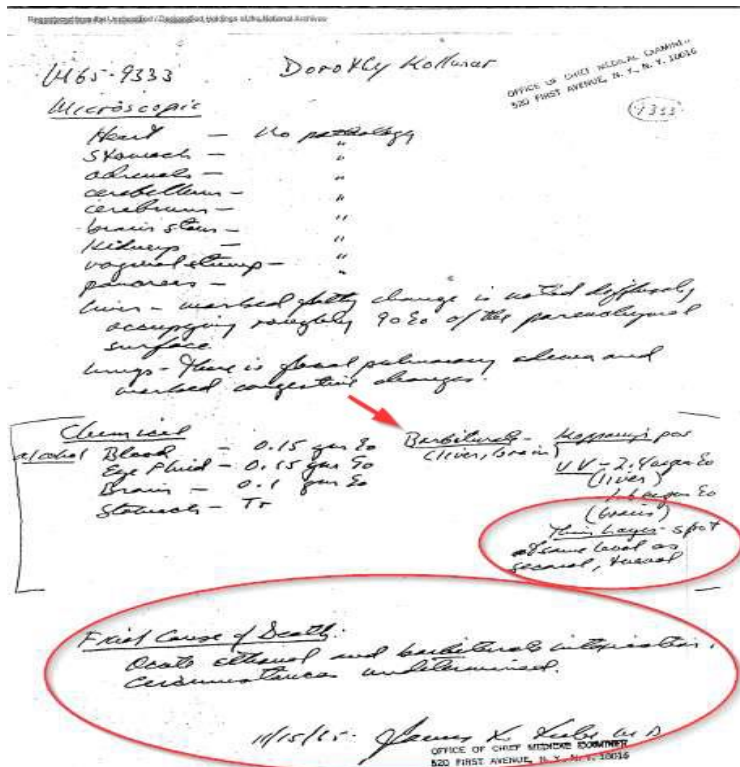 Reproduced from the Unclassified / Declassified Holdings of the National Archives
M65-9333
Dorothy Kollmar
OFFICE OF CHIEF MEDICAL EXAMINER
520 FIRST AVENUE, N. Y., N. Y. 10016
9333
Microscopic
Heart - No pathology
Stomach - "
adrenals - "
cerebellum - "
cerebrum - "
brain stem - "
Kidneys - "
vaginal stump - "
pancreas - "
liver - marked fatty change is noted diffusely
occupying roughly 90% of the parenchymal
surface
lungs - There is focal pulmonary edema and
marked congestive changes.
Chemical
alcohol Blood - 0.15 gm %
Eye Fluid - 0.15 gm %
Brain - 0.1 gm %
Stomach - Tr
Barbiturate - Koppanyi pos
(liver, brain)
UV - 2.4 %
(liver)
1.6 %
(brain)
Thin Layer - spot
at same level as
seconal, tuinal
Final Cause of Death:
Acute ethanol and barbiturate intoxication,
circumstances undetermined.
11/15/65: James L. Luke M D
OFFICE OF CHIEF MEDICAL EXAMINER
520 FIRST AVENUE, N. Y., N. Y. 10016